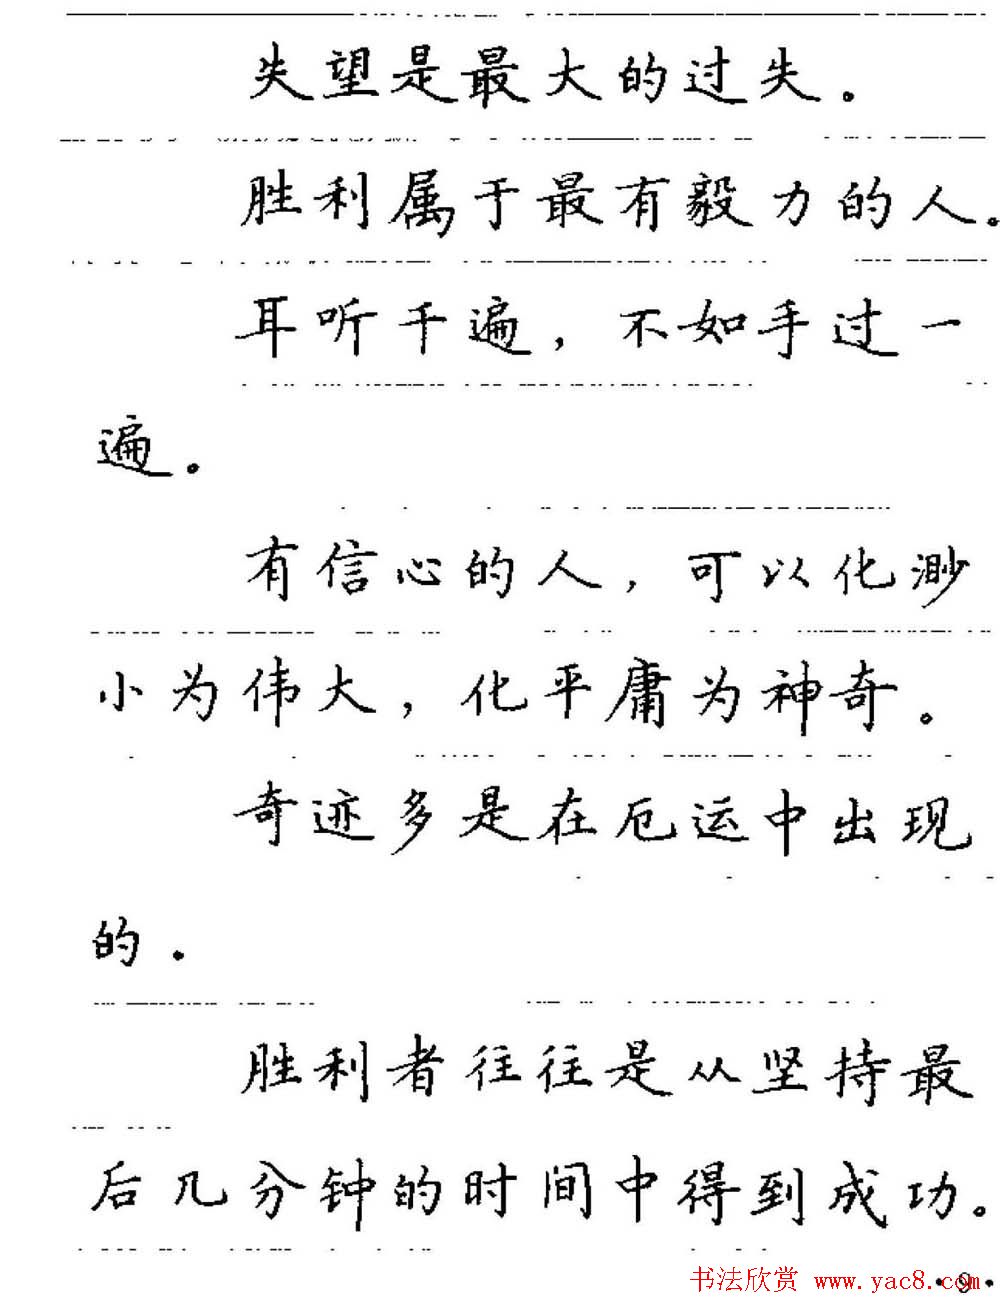 失望是最大的过失。
胜利属于最有毅力的人。
耳听千遍，不如手过一
遍。
有信心的人，可以化渺
小为伟大，化平庸为神奇。
奇迹多是在厄运中出现
的.
胜利者往往是从坚持最
后几分钟的时间中得到成功。
书法欣赏 www.yac8.com
·9·